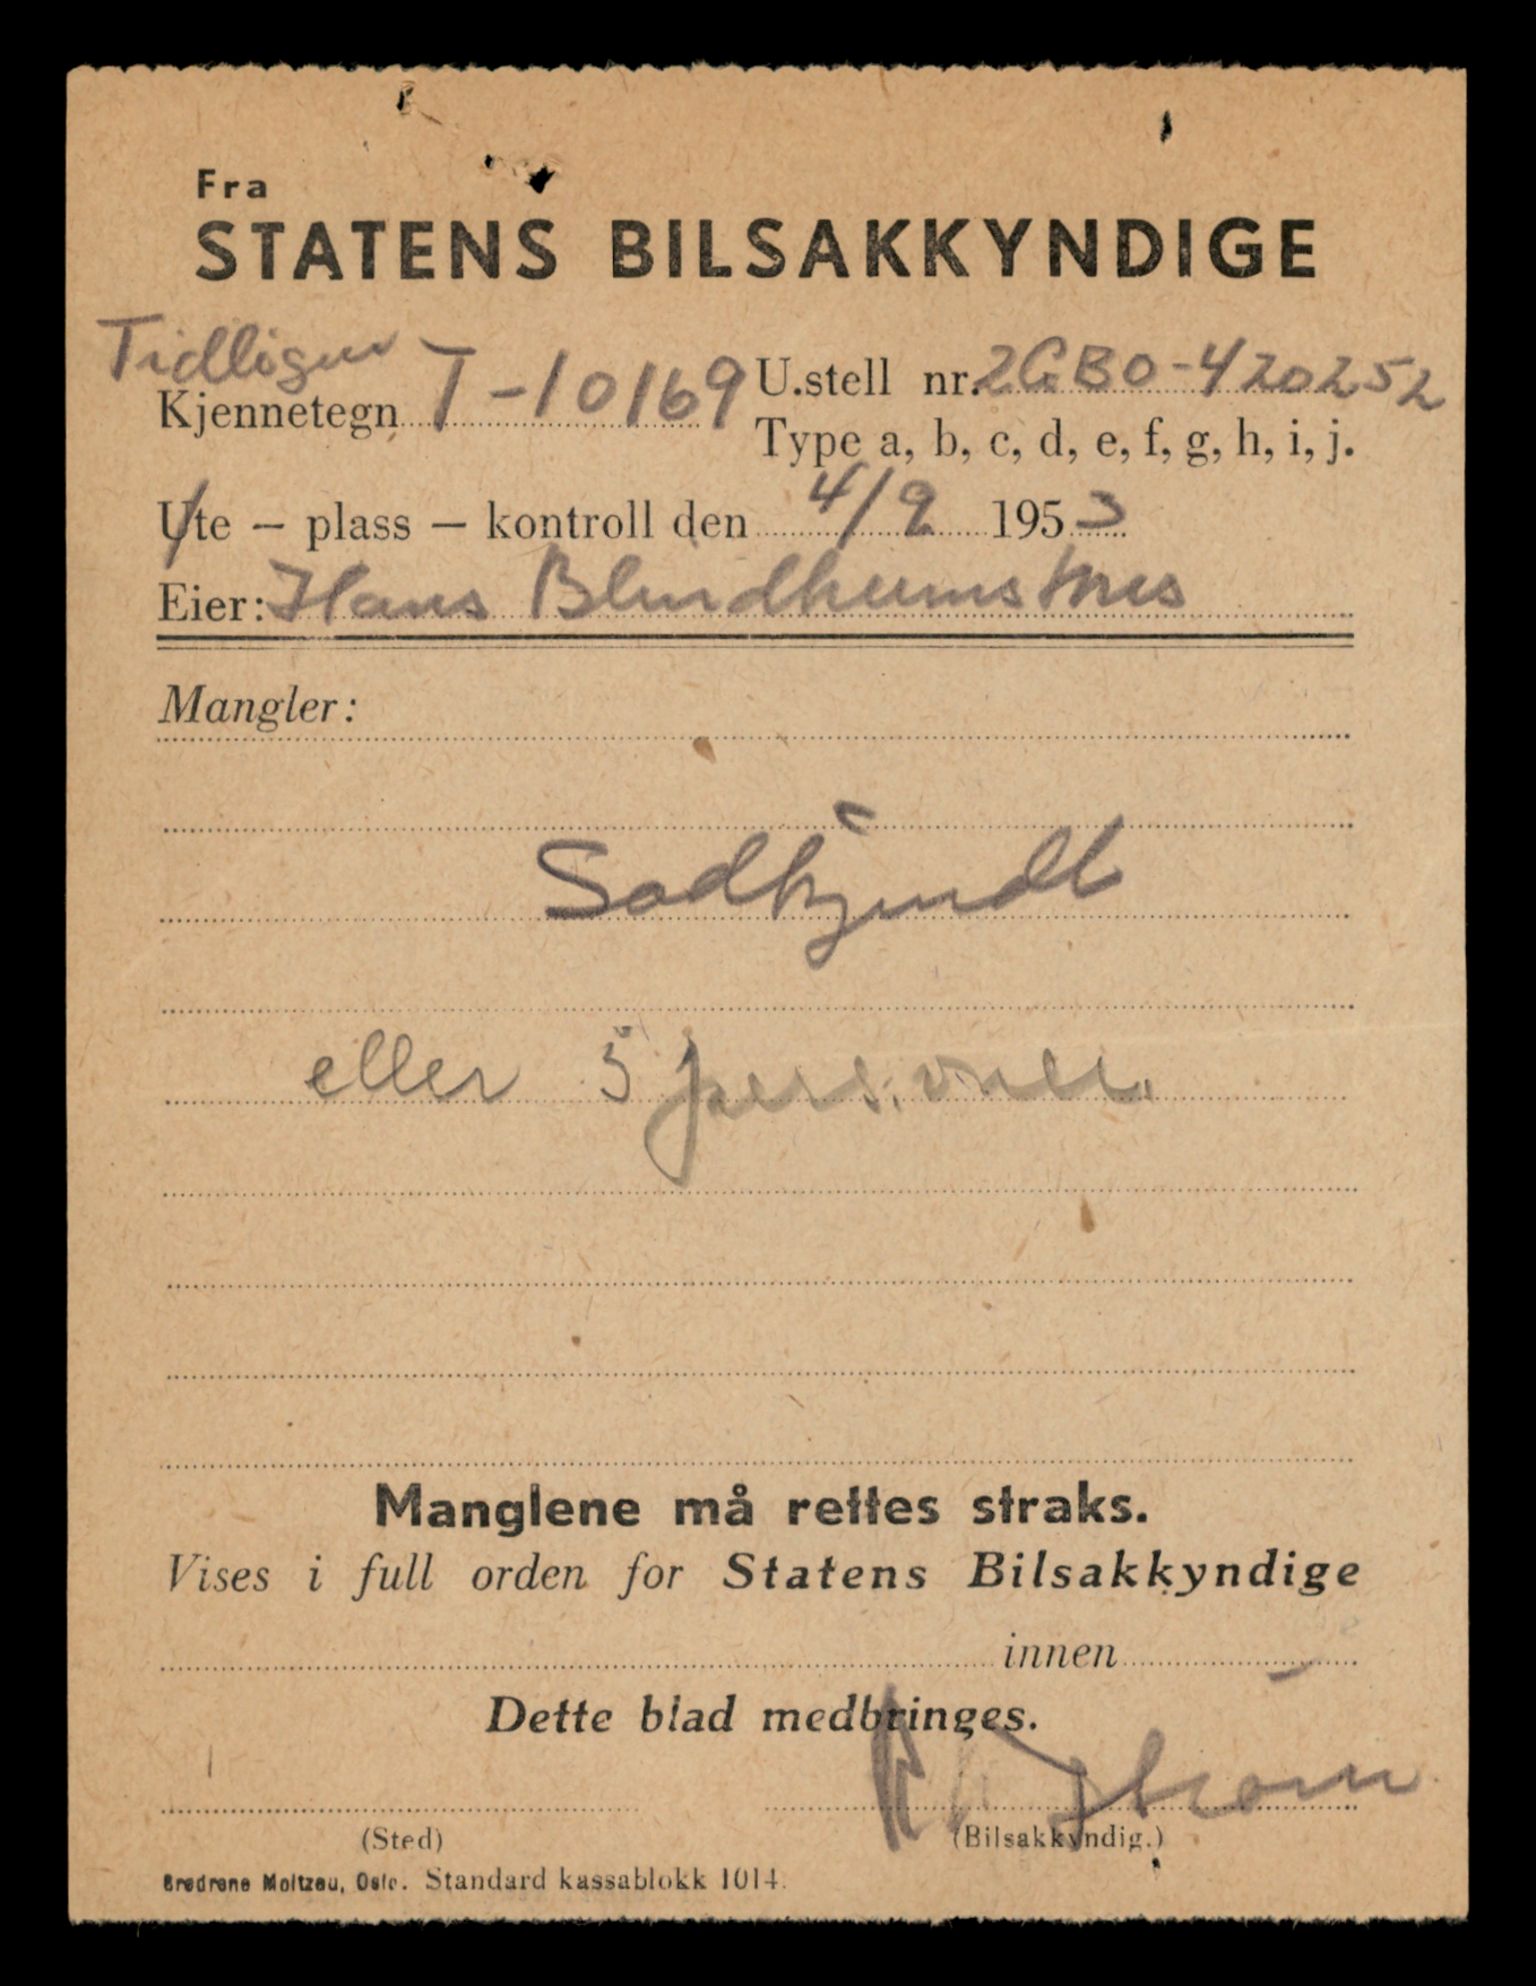 Fra
STATENS BILSAKKYNDIGE
Tidligere
Kjennetegn T-10169 U.stell nr. 2GBO-420252
Type a, b, c, d, e, f, g, h, i, j.
Ute – plass – kontroll den 4/9 1953
Eier: Hans Blindheimsnes
Mangler:
Godkjendt
eller 5 pers.
Manglene må rettes straks.
Vises i full orden for Statens Bilsakkyndige
innen
Dette blad medbringes.
(Sted) (Bilsakkyndig.)
Brødrene Moltzau, Oslo. Standard kassablokk 1014.